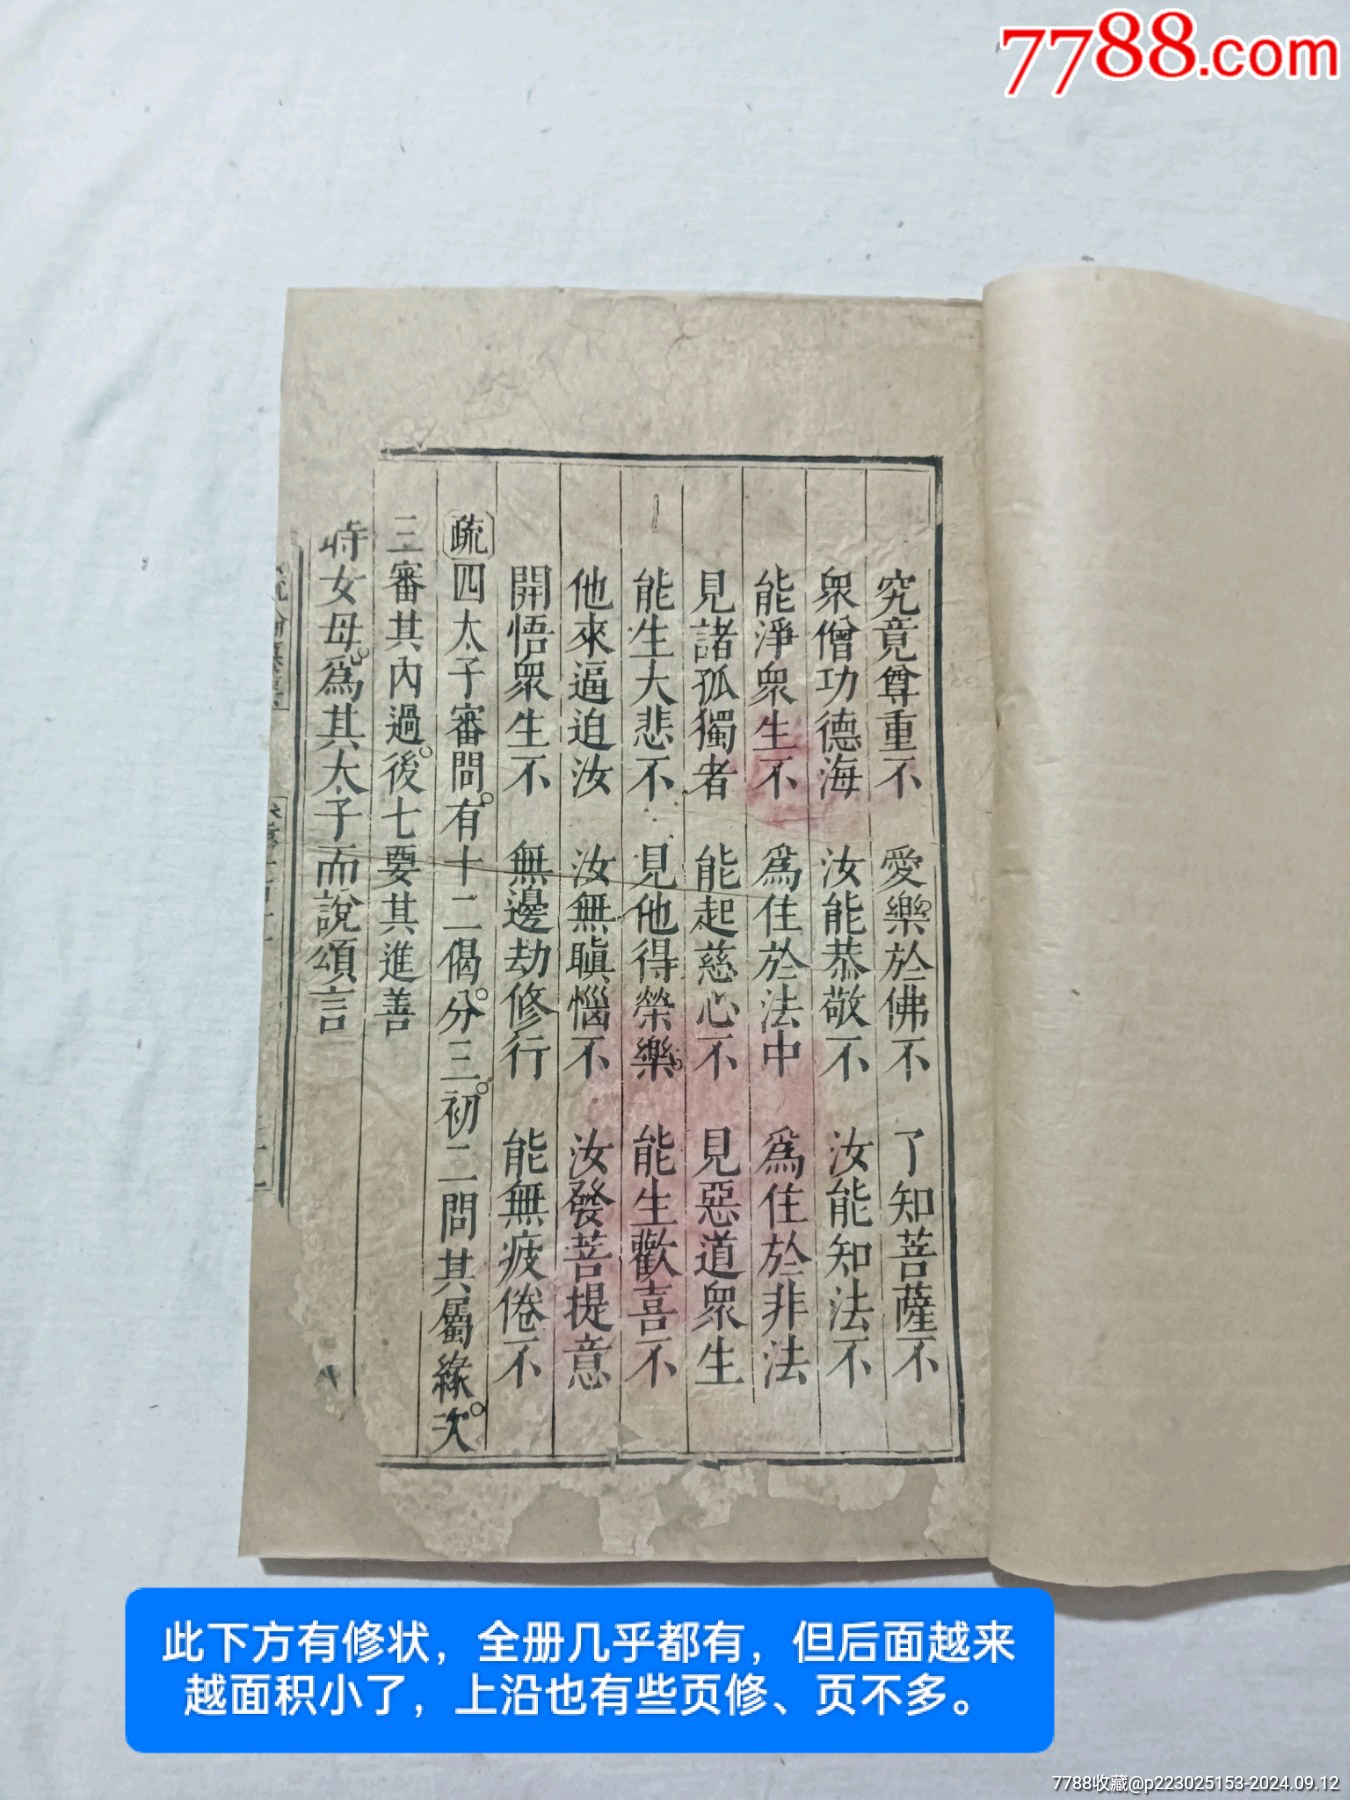 7788.com
究竟尊重不 愛樂於佛不 了知菩薩不
衆僧功德海 汝能恭敬不 汝能知法不
能淨衆生不 爲住於法中 爲住於非法
見諸孤獨者 能起慈心不 見惡道衆生
能生大悲不 見他得榮樂 能生歡喜不
他來逼迫汝 汝無瞋惱不 汝發菩提意
開悟衆生不 無邊劫修行 能無疲倦不
疏四太子審問。有十二偈。分三。初二問其屬緣。次
三審其內過。後七要其進善
時女母。爲其太子而說頌言
此下方有修状，全册几乎都有，但后面越来
越面积小了，上沿也有些页修、页不多。
7788收藏@p223025153-2024.09.12